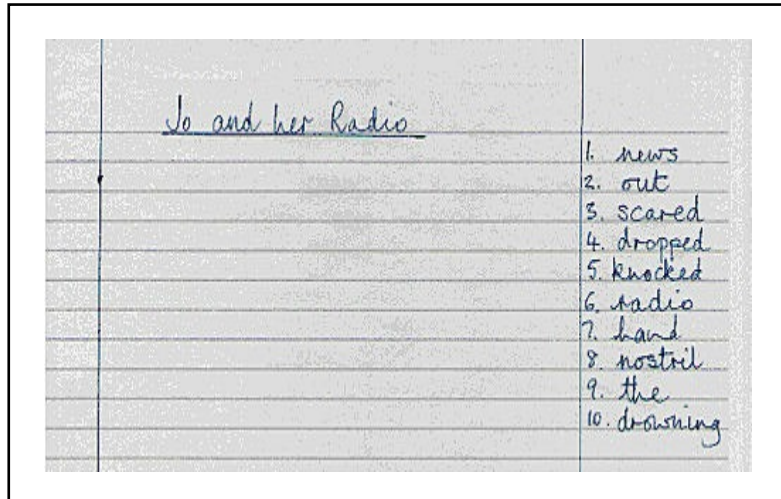 Jo and her Radio
1. news
2. out
3. scared
4. dropped
5. knocked
6. radio
7. hand
8. nostril
9. the
10. drowning